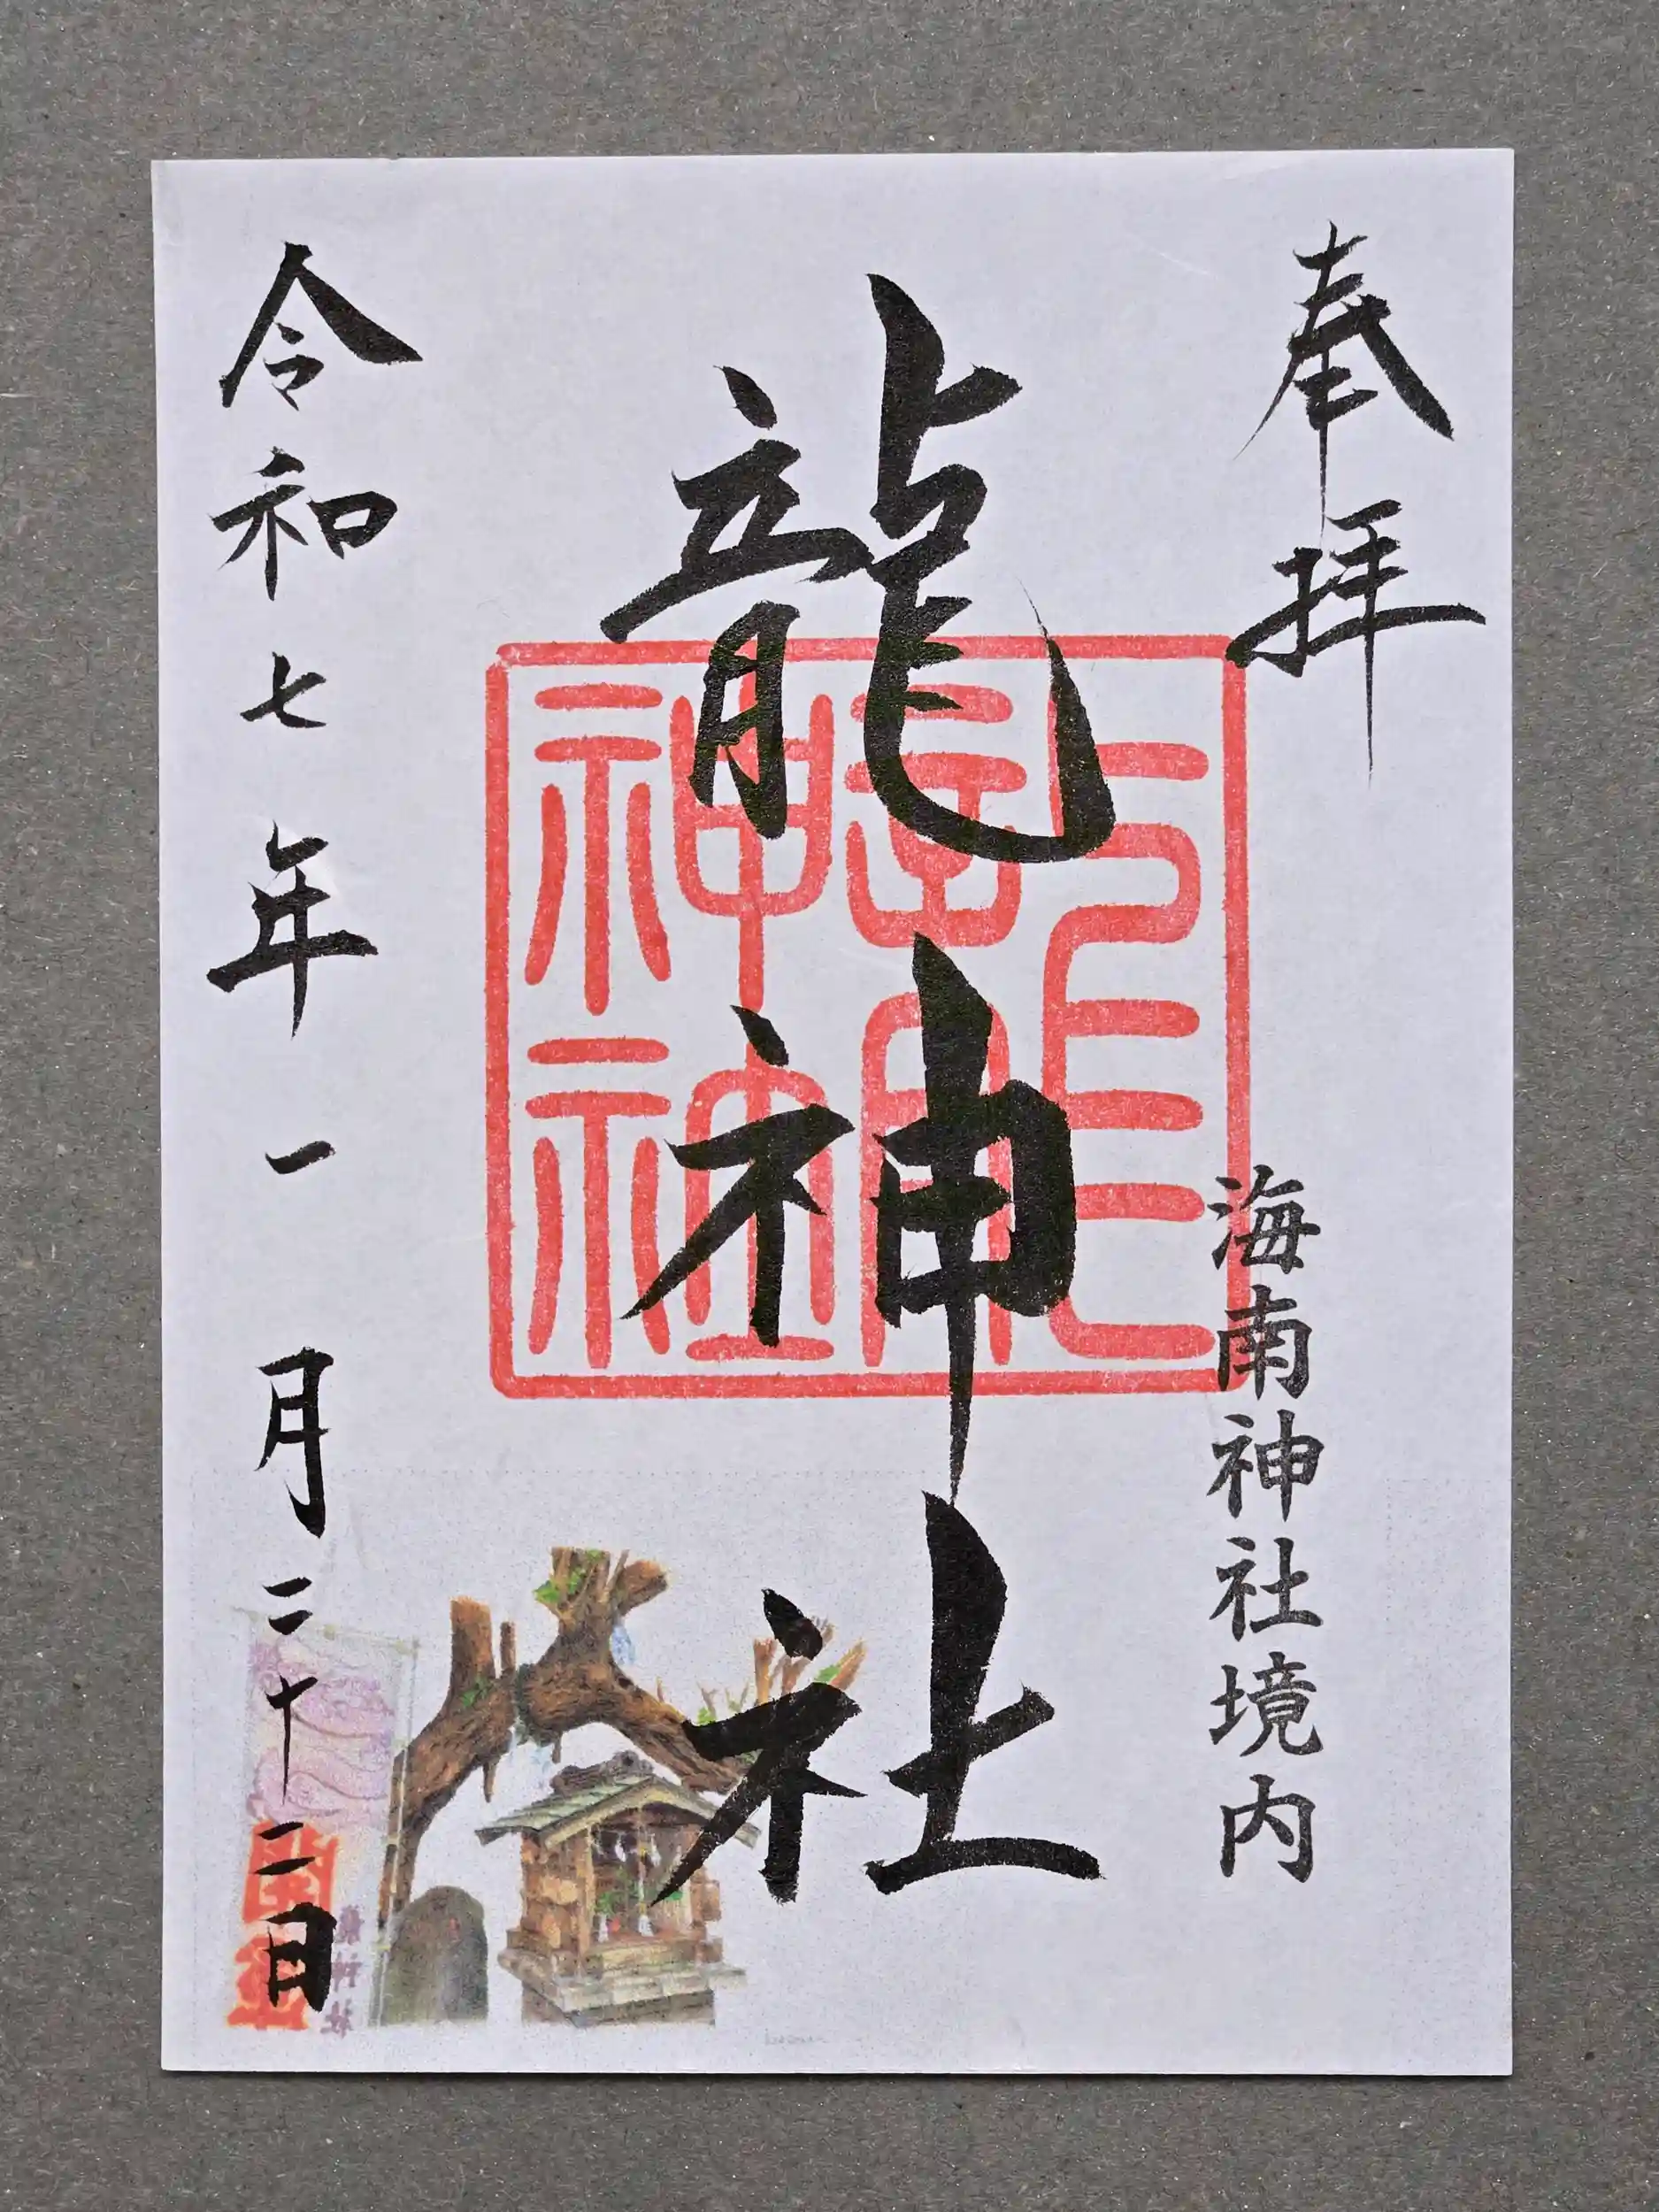 奉拝
海南神社境内
龍神社
龍神神社
令和七年一月二十二日
龍神社